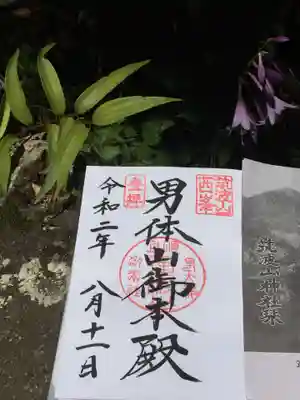 筑波山
西峯
男体山御本殿
登拝
令和二年
八月十一日
筑波山神社